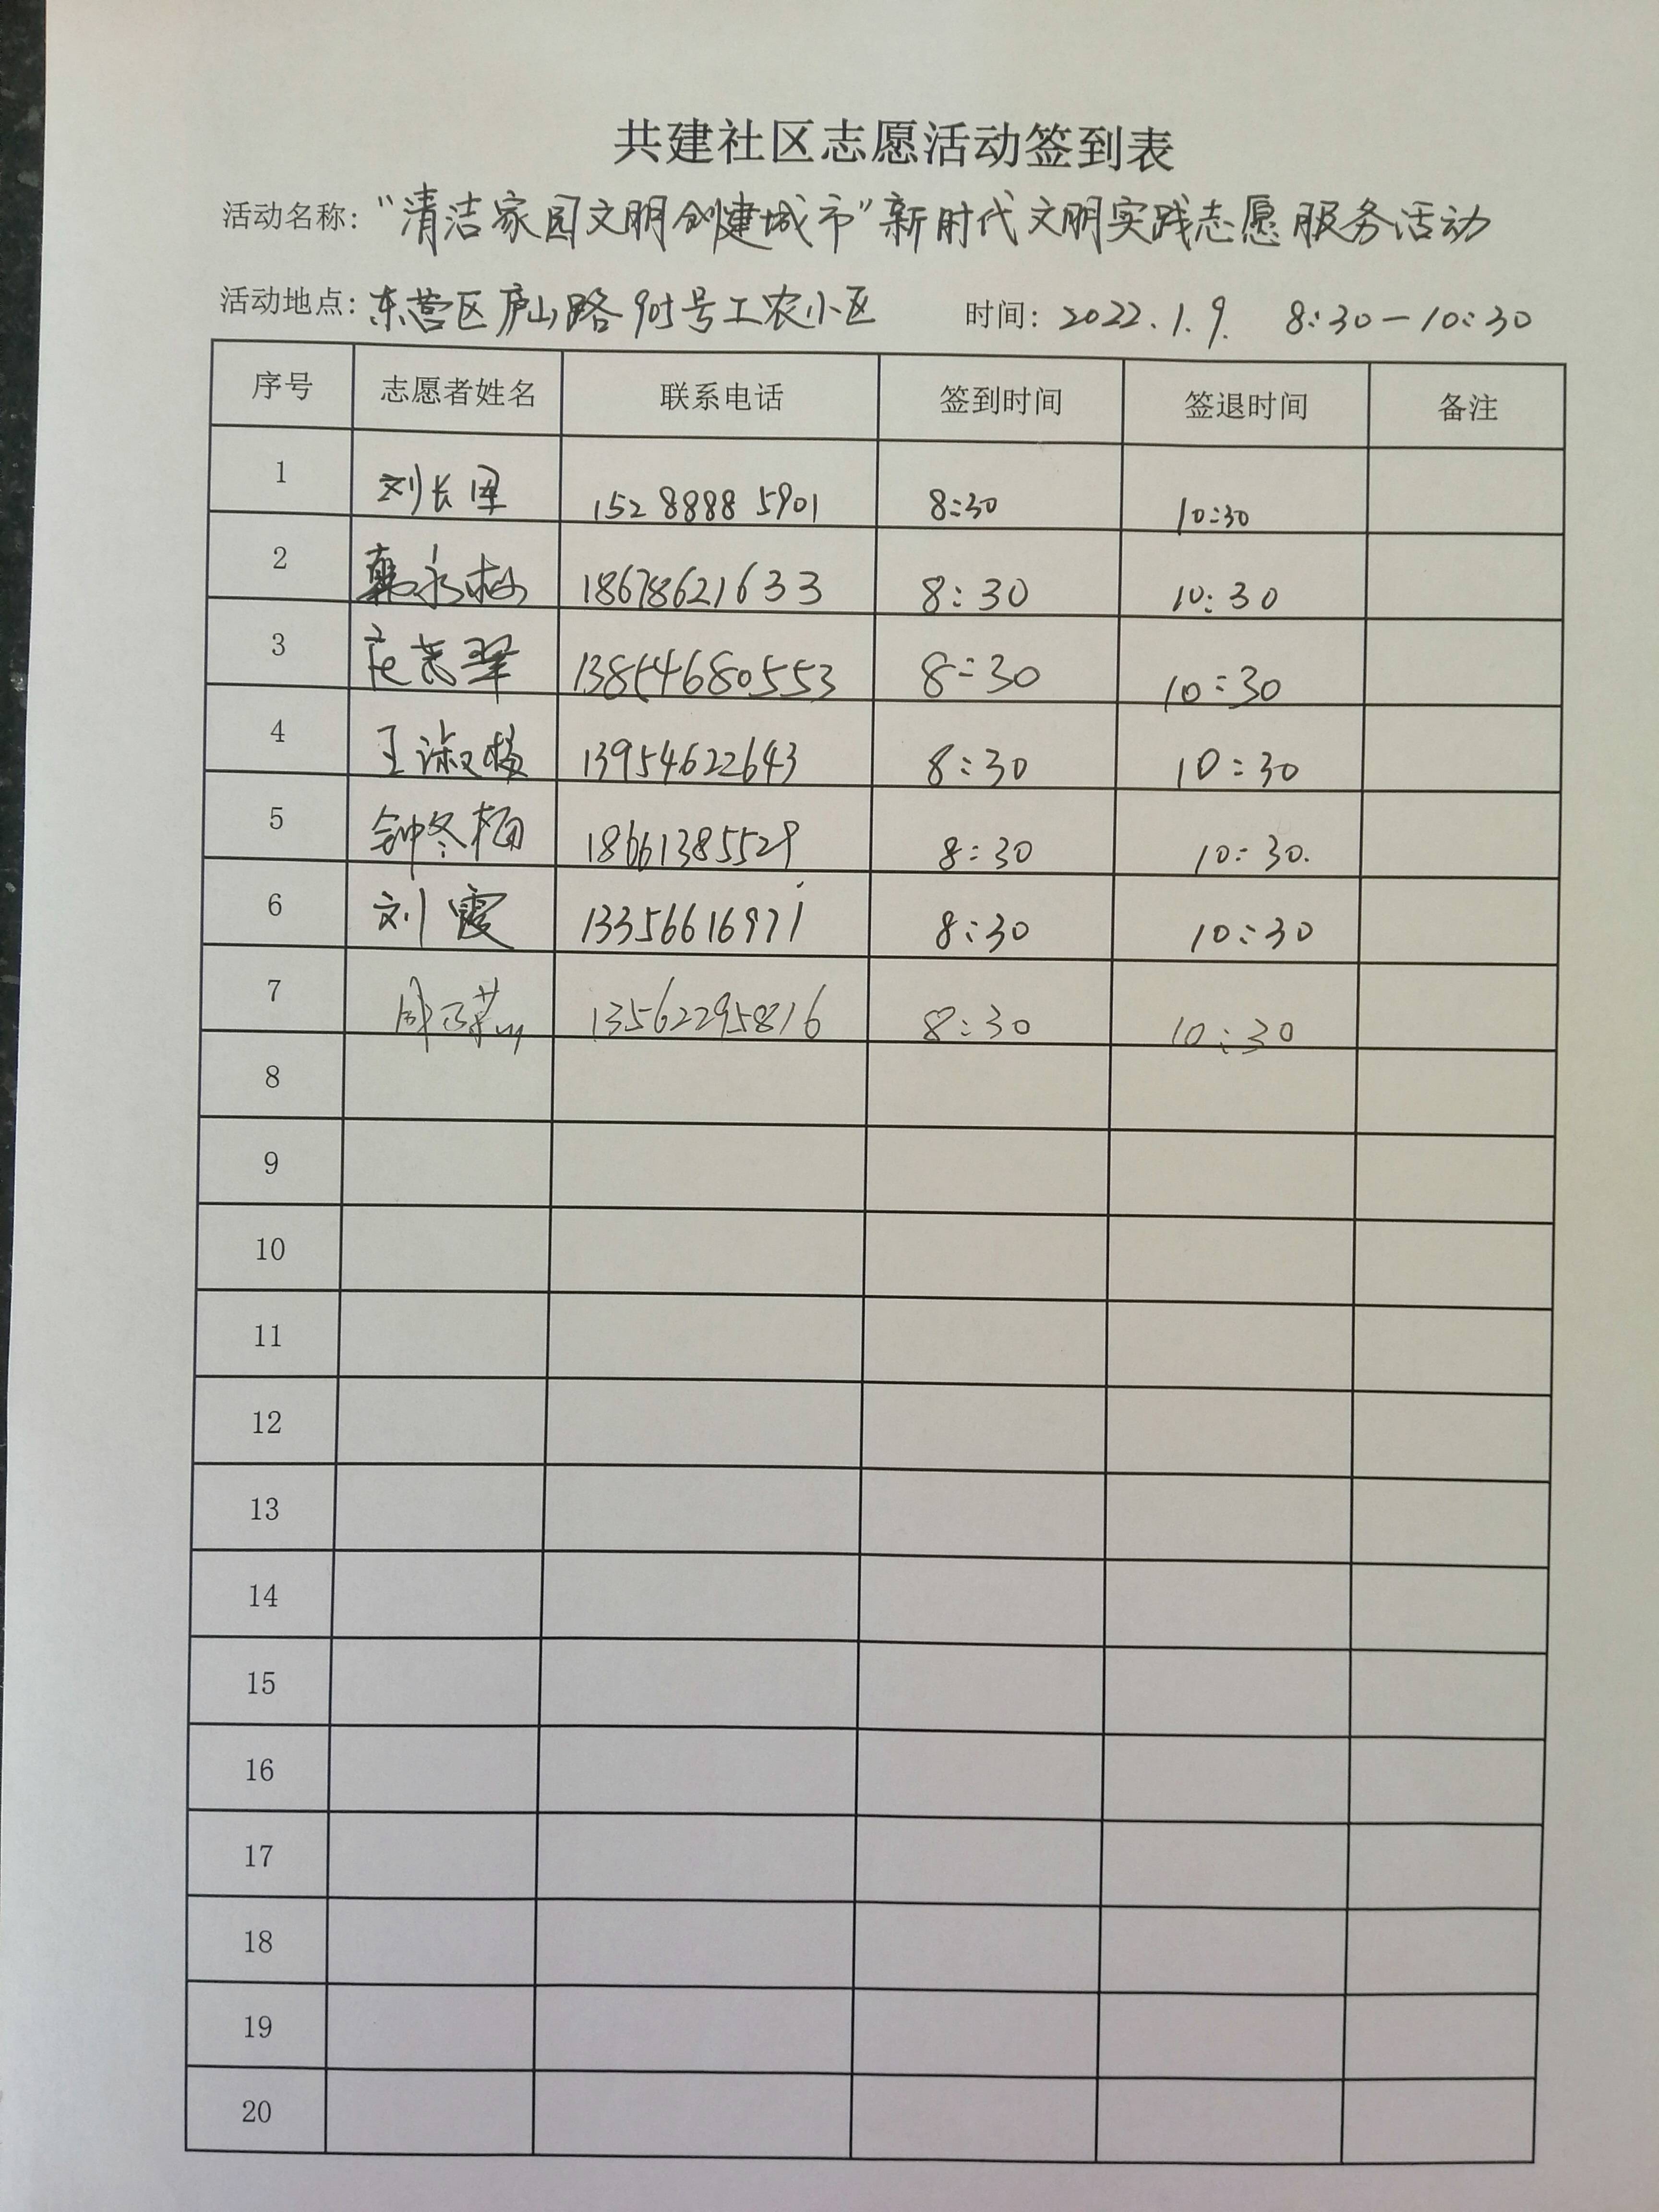 共建社区志愿活动签到表
活动名称："清洁家园文明创建城市"新时代文明实践志愿服务活动
活动地点：东营区庐山路905号工农小区 时间：2022.1.9. 8:30—10:30
序号 志愿者姓名 联系电话 签到时间 签退时间 备注
1 刘长军 152 8888 5901 8:30 10:30
2 韩永梅 18678621633 8:30 10:30
3 13854680553 8:30 10:30
4 王淑梅 13954622643 8:30 10:30
5 钟冬梅 18661385529 8:30 10:30.
6 刘霞 13356616971 8:30 10:30
7 13562295816 8:30 10:30
8
9
10
11
12
13
14
15
16
17
18
19
20